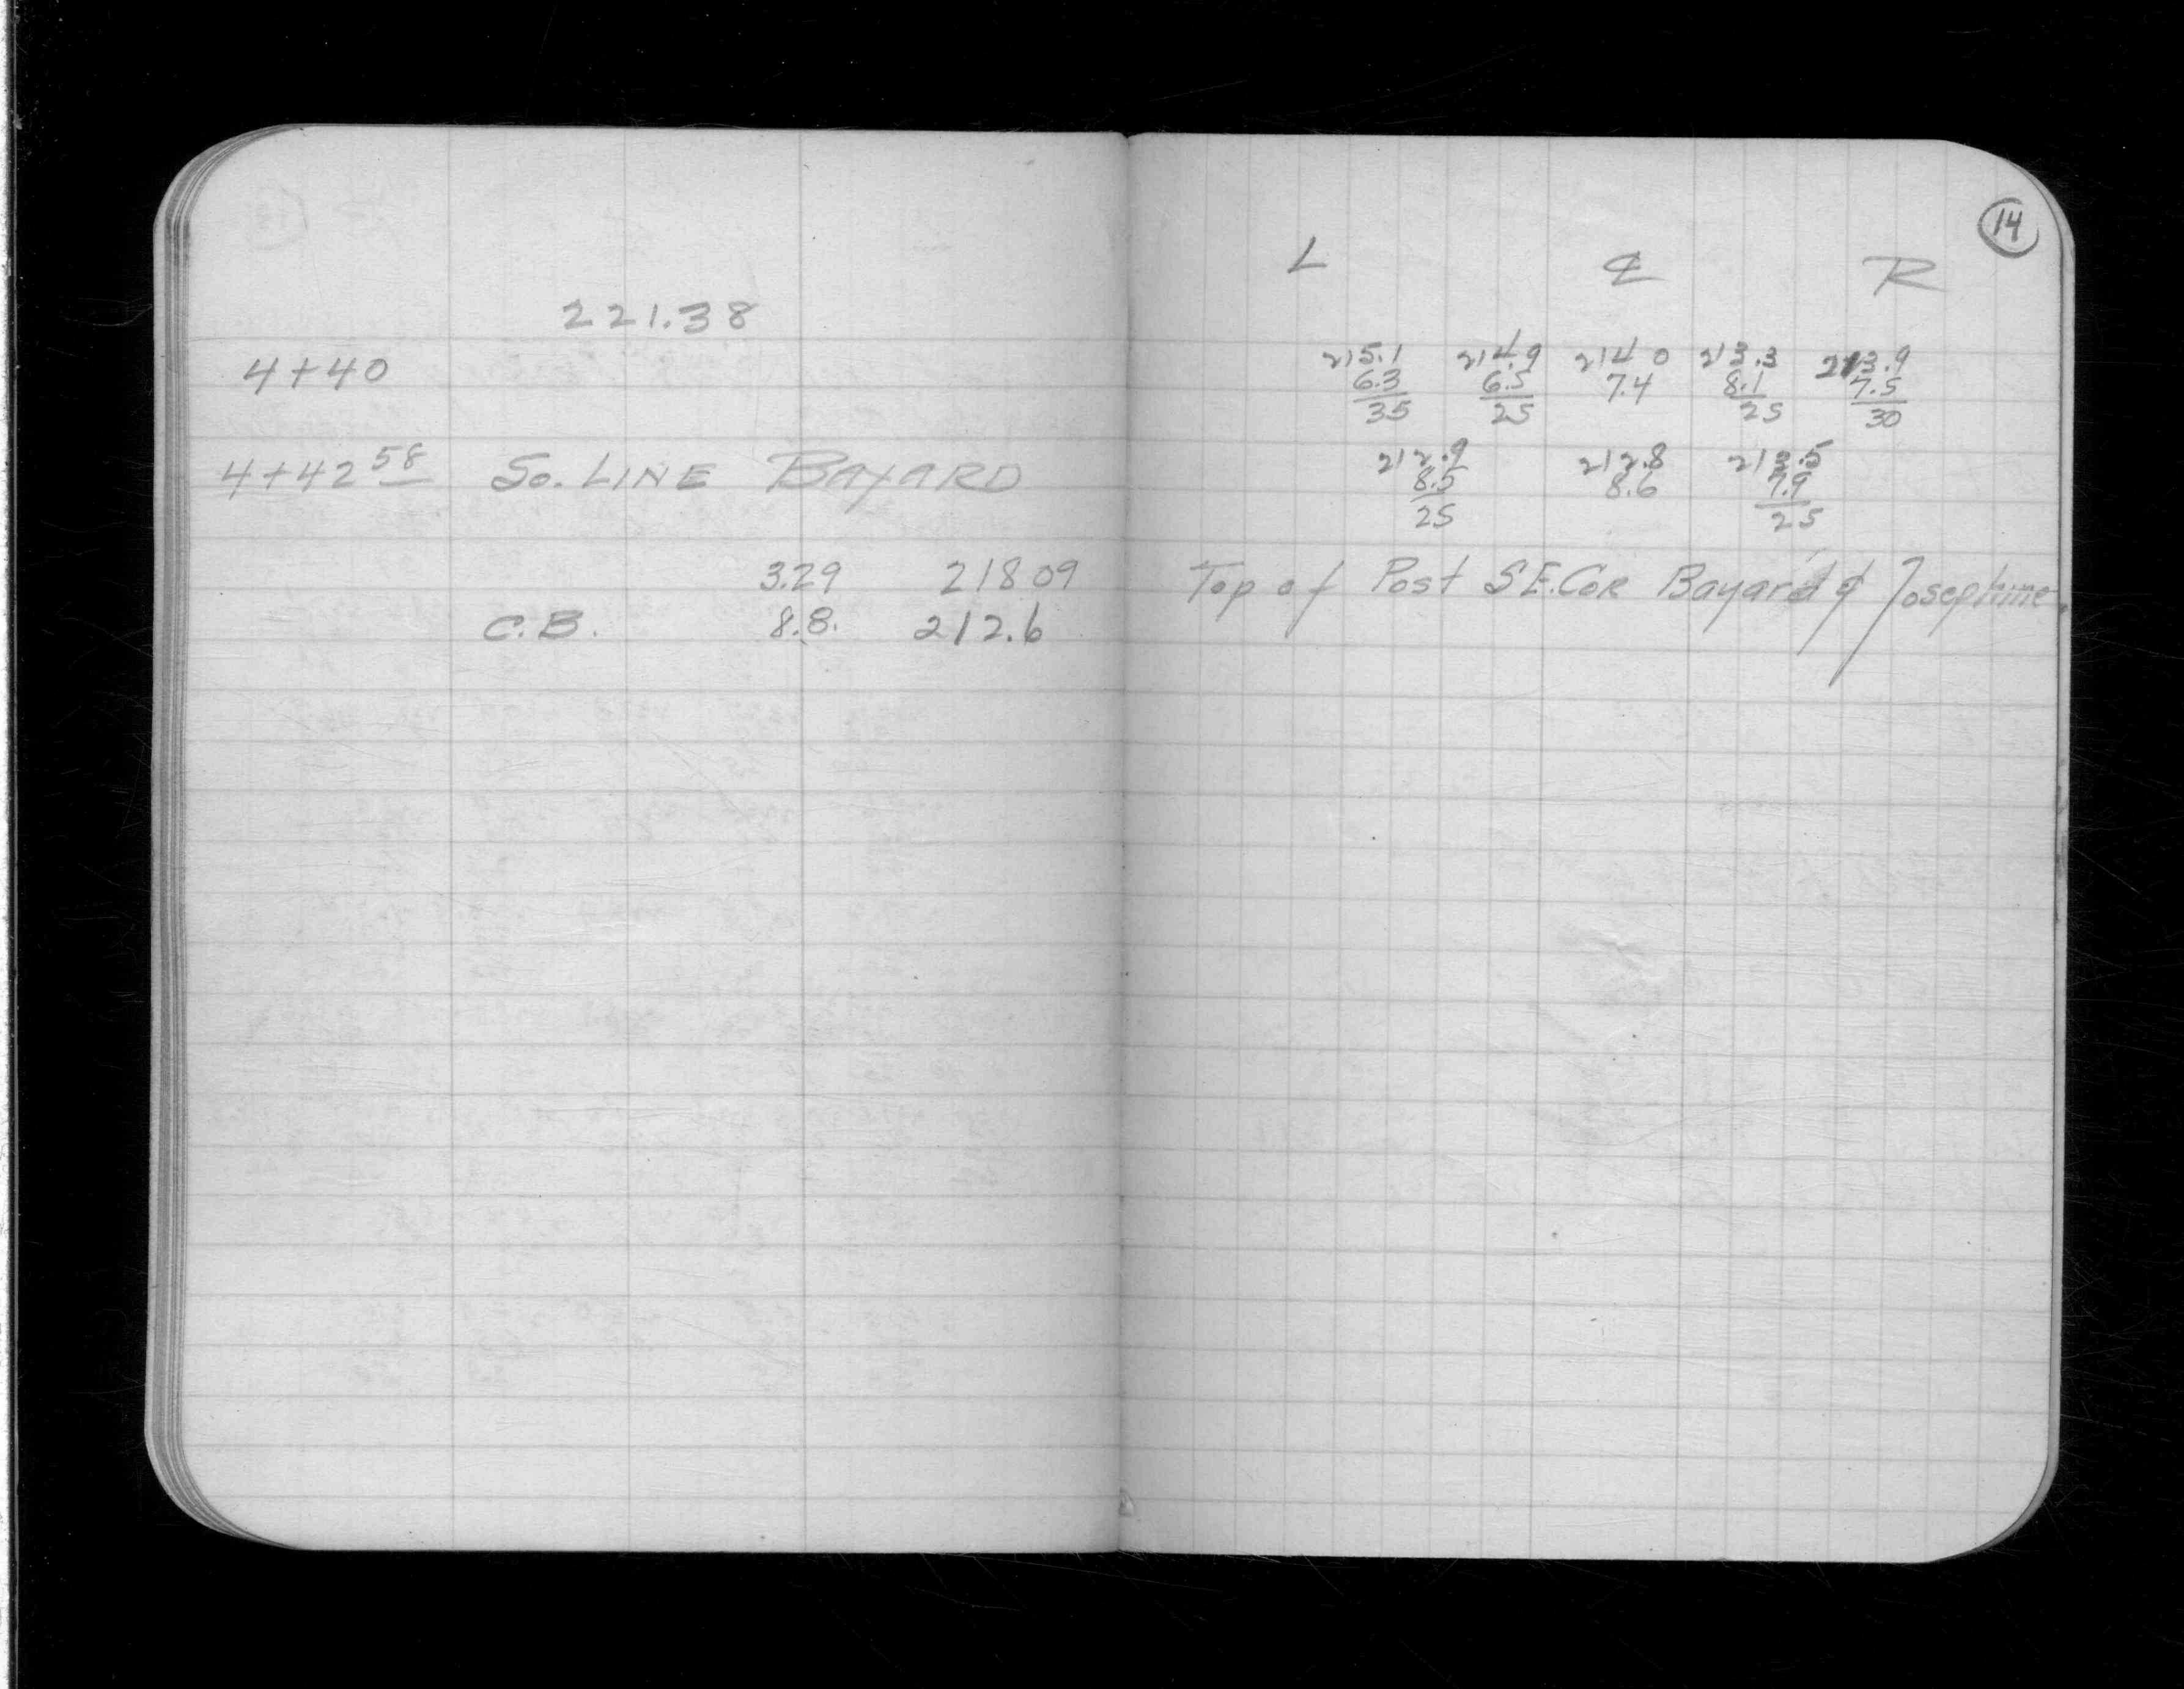 14
L ℄ R
221.38
4+40 215.1 214.9 214 0 213.3 213.9
6.3 6.5 7.4 8.1 7.5
35 25 25 30
4+42 58 So. LINE BAYARD 212.9 212.8 213.5
8.5 8.6 7.9
25 25
3.29 218 09 Top of Post S.E. Cor Bayard & Josephine.
C.B. 8.8. 212.6